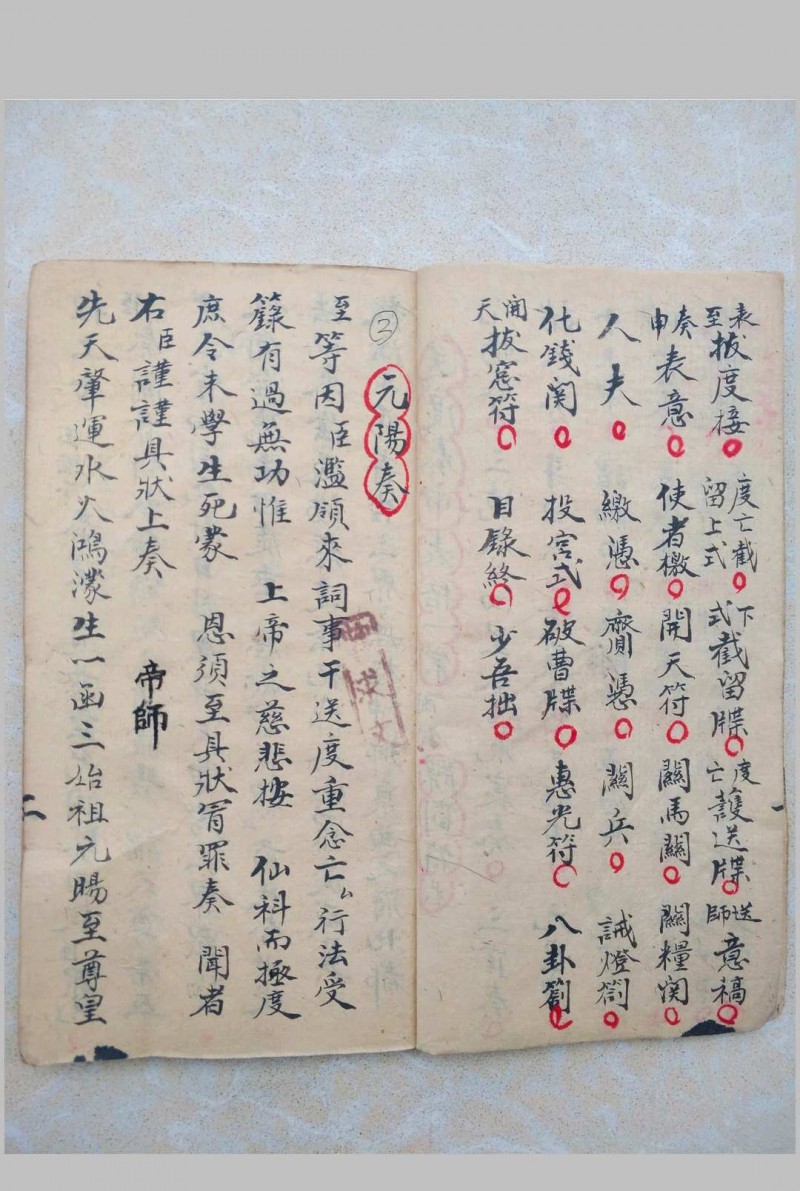 表至拔度接 度亡截留上式 下式截留牒 度亡護送牒 送師意稿
奏申表意 使者檄 開天符 關馬關 關糧関
人夫 繳憑 齎憑 關兵 誡燈劄
化錢関 投宮式 破曹牒 惠光符 八卦劄
開天拔窓符 目錄終 少吾拙
②
元陽奏
至等因臣濫領來詞事干送度重念亡厶行法受
籙有過無功惟 上帝之慈悲按 仙科而極度
庶令末學生死蒙 恩須至具狀冐罪奏 聞者
右臣謹謹具狀上奏 帝師
先天肇運水火鴻濛生一函三始祖元暘至尊皇
二